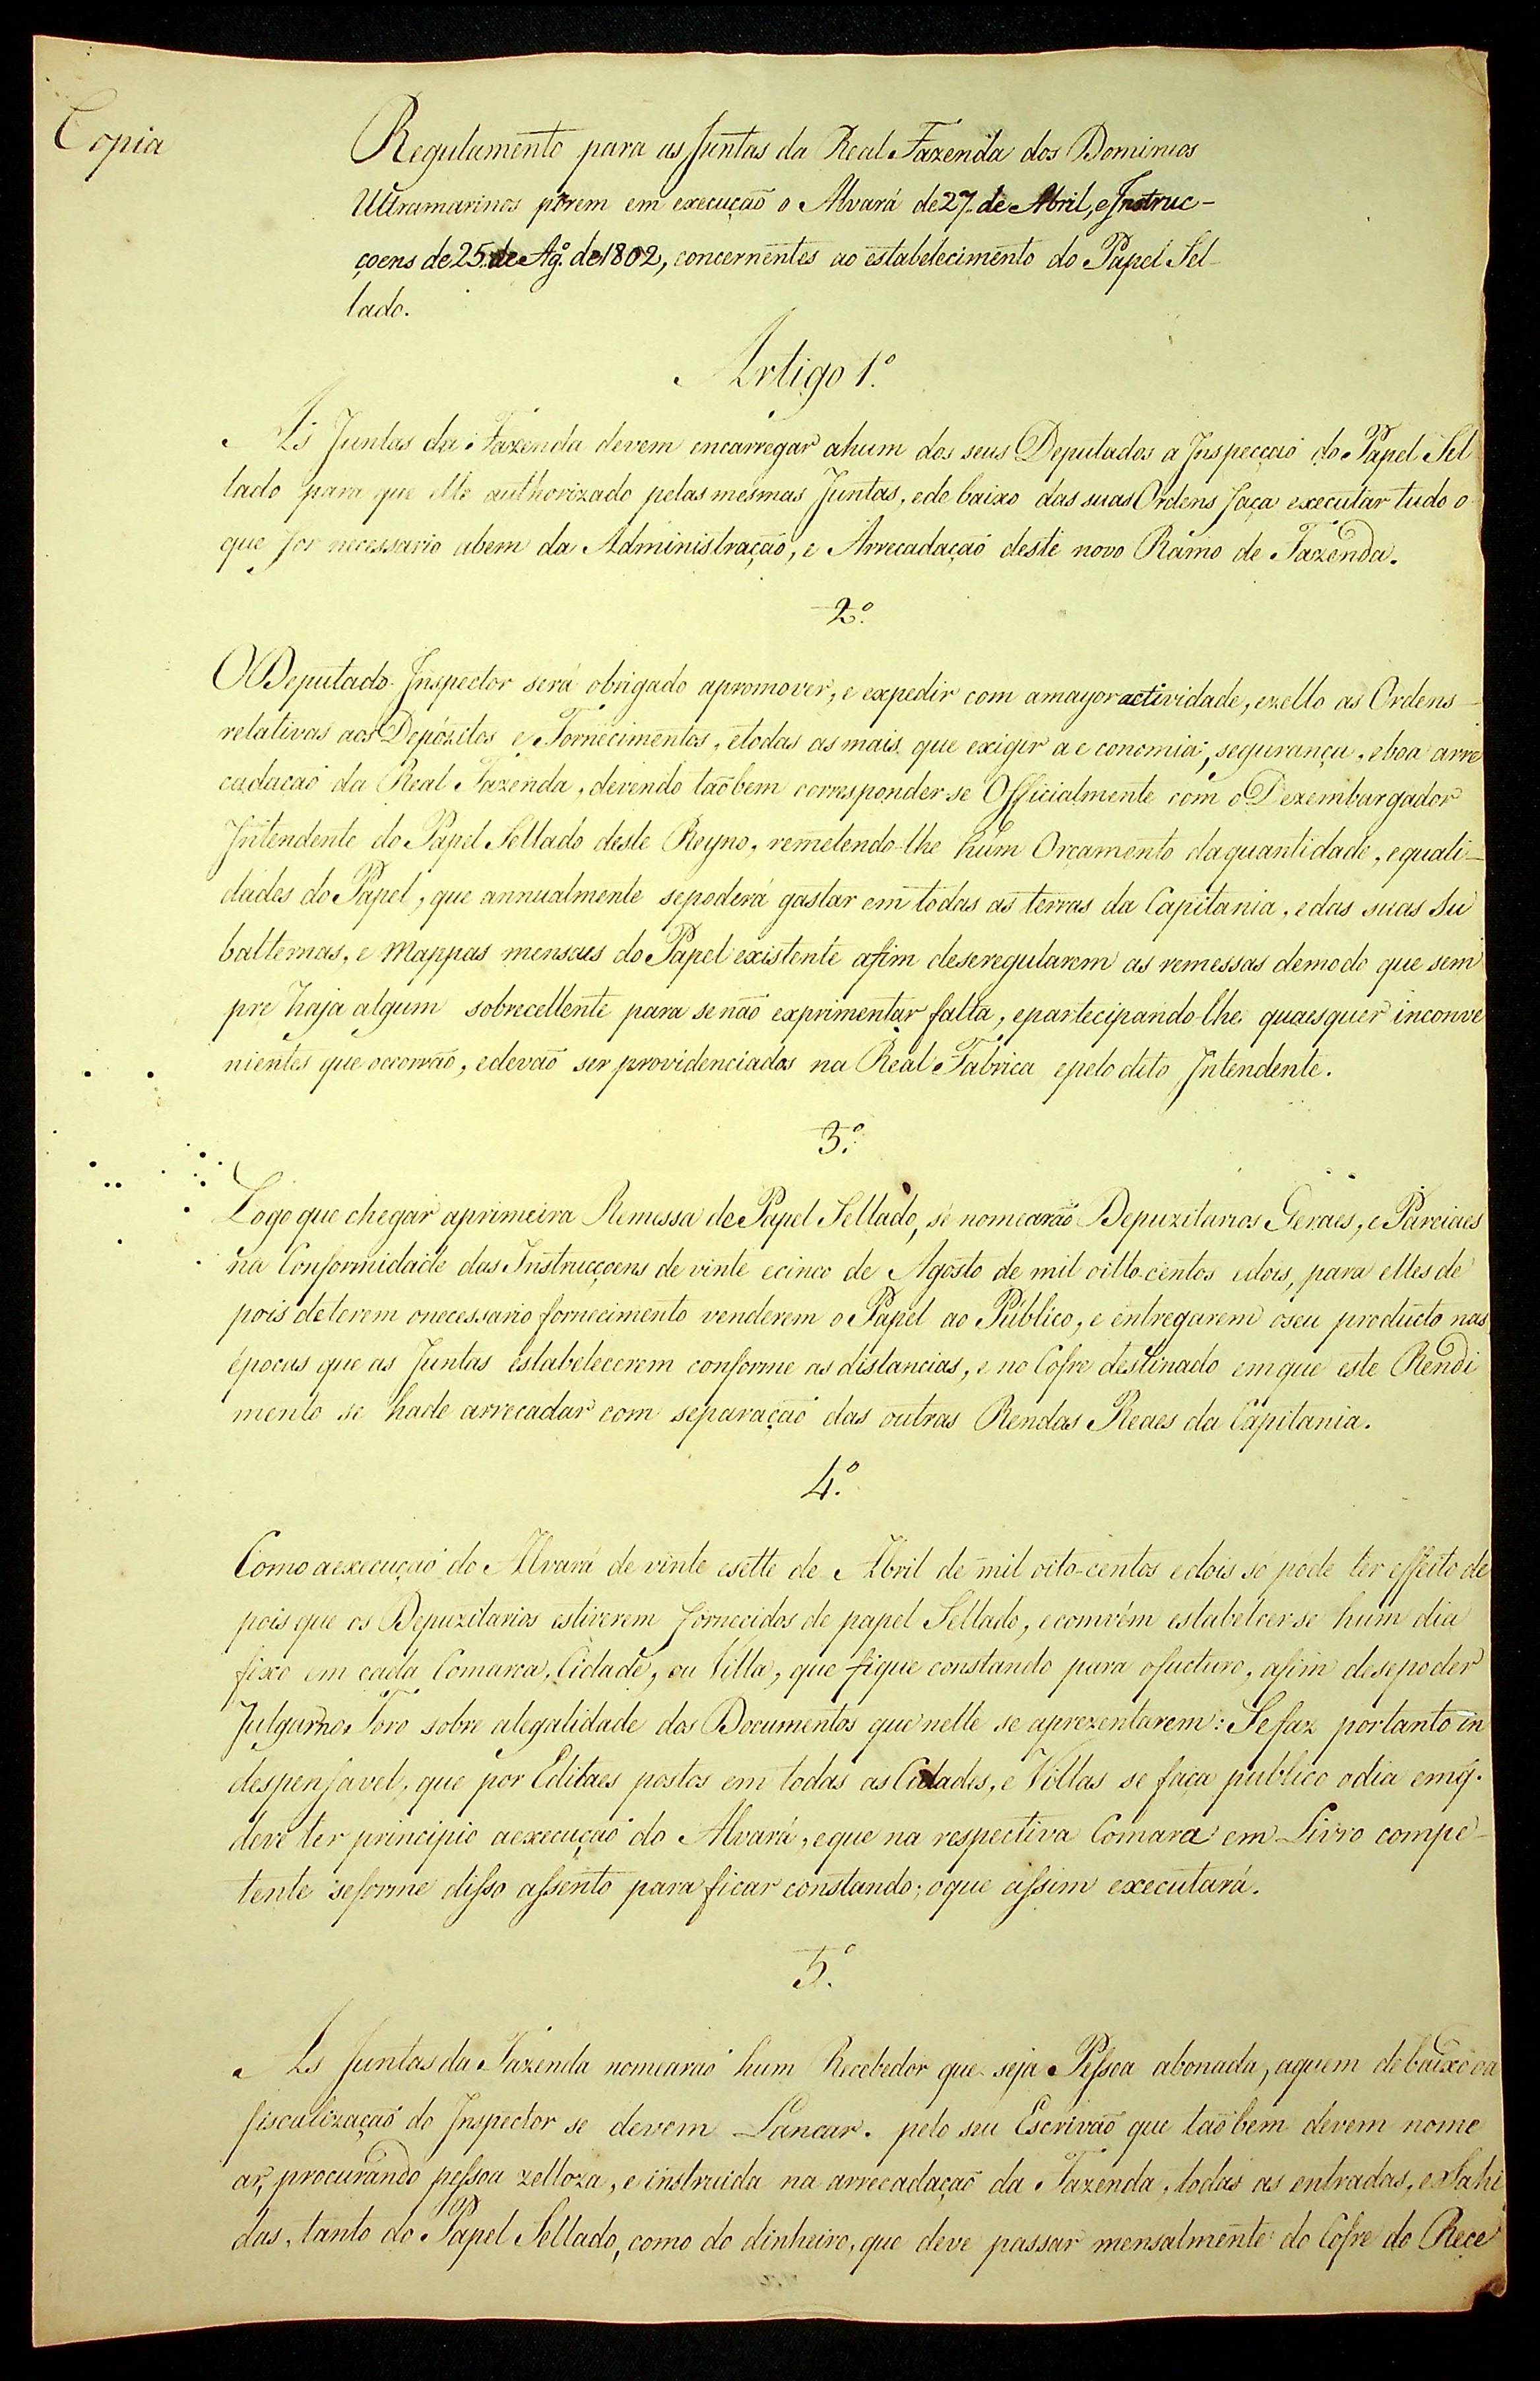 Copia
Regulamento para as Juntas da Real Fazenda dos Dominios
Ultramarinos pôrem em execução o Alvará de 27 de Abril, e Instruc-
çoens de 25 de Ag.º de 1802, concernentes ao estabelecimento do Papel Sel-
lado.
Artigo 1.º
As Juntas da Fazenda devem encarregar ahum dos seus Deputados a Inspecção do Papel Sel
lado para que elle authorizado pelas mesmas Juntas, ede baixo das suas Ordens faça executar tudo o
que for necessario abem da Administração, e Arrecadação deste novo Ramo de Fazenda.
2.º
O Deputado Inspector será obrigado apromover, e expedir com amayor actividade, ezello as Ordens
relativas aos Depózitos e Fornecimentos, etodas as mais que exigir a economia, segurança, eboa arre
cadação da Real Fazenda, devendo taõbem corresponder-se Officialmente com o Dezembargador
Intendente do Papel Sellado deste Reyno, remetendo-lhe hum Orçamento daquantidade, equali-
dades do Papel, que annualmente sepoderá gastar em todas as terras da Capitania, edas suas Su
balternas, e Mappas mensaes do Papel existente afim deseregularem as remessas demodo que sem
pre haja algum sobrecellente para senão exprimentar falta, epartecipando-lhe quaesquer inconve
nientes que occorrão, edevão ser providenciados na Real Fabrica epelo dito Intendente.
3.º
Logo que chegar aprimeira Remessa de Papel Sellado, se nomearão Depuzitarios Geraes, e Parciaes
na Conformidade das Instrucçoens de vinte ecinco de Agosto de mil oitto-centos edois, para elles de
pois deterem onecessario fornecimento venderem o Papel ao Público, e entregarem oseu producto nas
épocas que as Juntas estabelecerem conforme as distancias, e no Cofre destinado emque este Rendi
mento se hade arrecadar com separação das outras Rendas Reaes da Capitania.
4.º
Como aexecução do Alvará de vinte esette de Abril de mil oito-centos edois só póde ter effeito de
pois que os Depuzitarios estiverem fornecidos de papel Sellado, econvém estabelcer-se hum dia
fixo em cada Comarca, Cidade, ou Villa, que fique constando para ofucturo, afim desepoder
Julgar no Foro sobre alegalidade dos Documentos que nelle se aprezentarem: Se faz portanto in
despensavel, que por Editaes postos em todas as Cidades, e Villas se faça publico odia emq.
deve ter principio aexecução do Alvará, eque na respectiva Comara em Livro compe-
tente seforme disso assento para ficar constando; oque assim executará.
5.º
As Juntas da Fazenda nomearão hum Recebedor que seja Pessoa abonada, aquem debaixo da
fiscalização do Inspector se devem Lancar. pelo seu Escrivão que taõbem devem nome
ar, procurando pessoa zelloza, e instruida na arrecadação da Fazenda, todas as entradas, e Sahi
das, tanto do Papel Sellado, como do dinheiro, que deve passar mensalmente do Cofre do Rece